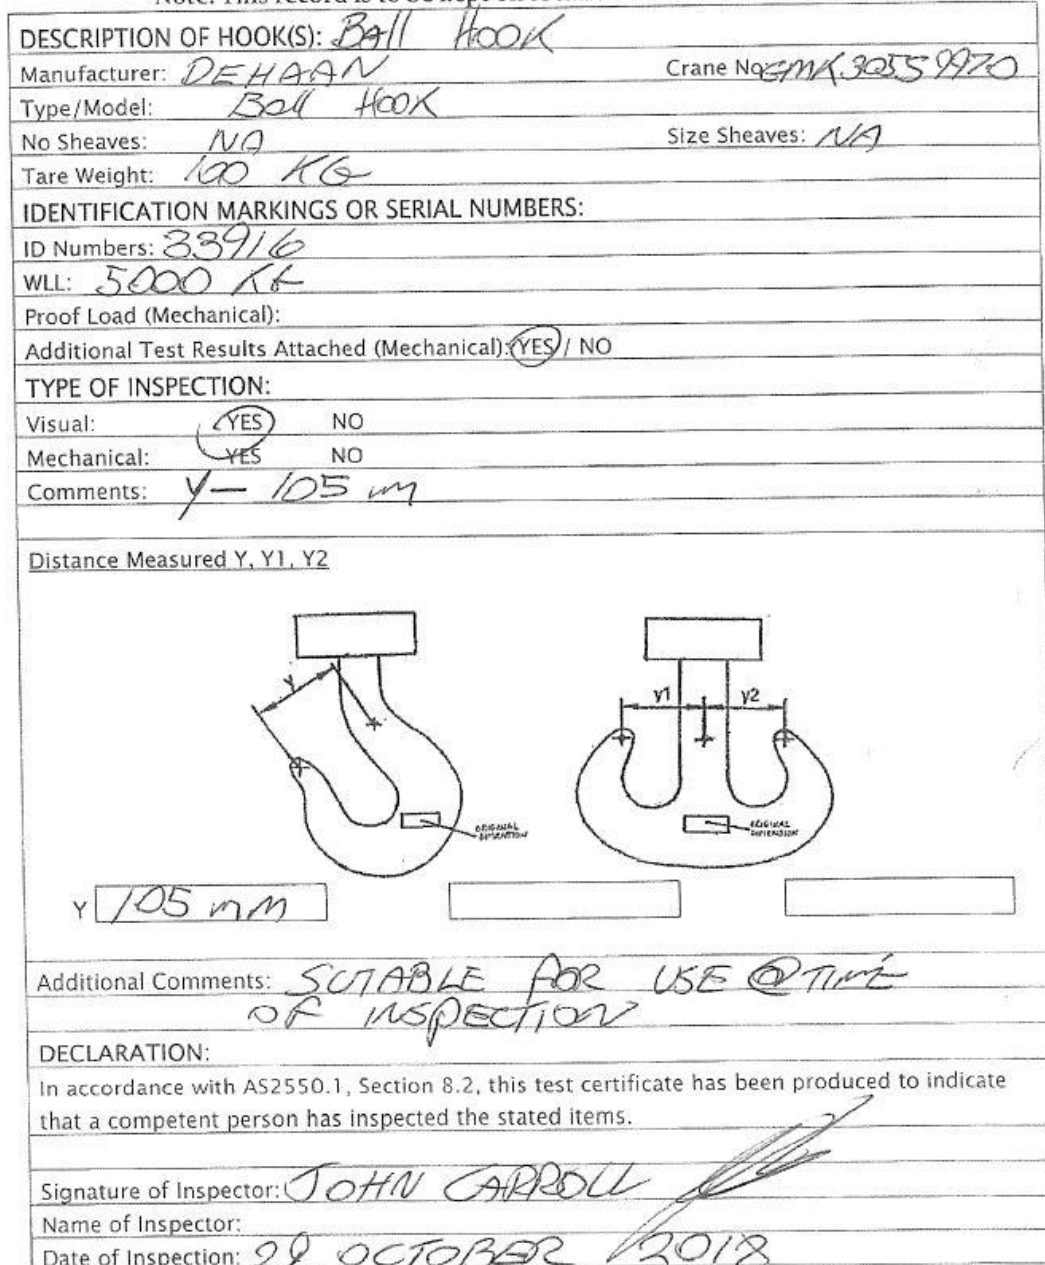 DESCRIPTION OF HOOK(S): Ball HOOK
Manufacturer: DEHAAN Crane No GMK3055 9970
Type/Model: Ball HOOK
No Sheaves: NA Size Sheaves: NA
Tare Weight: 100 KG
IDENTIFICATION MARKINGS OR SERIAL NUMBERS:
ID Numbers: 33916
WLL: 5000 KG
Proof Load (Mechanical):
Additional Test Results Attached (Mechanical): YES / NO
TYPE OF INSPECTION:
Visual: YES NO
Mechanical: YES NO
Comments: Y — 105 mm
Distance Measured Y, Y1, Y2
Y
y1 y2
ORIGINAL
DIMENTION
ORIGINAL
DIMENSION
Y 105 mm
Additional Comments: SUTABLE FOR USE @ TIME
OF INSPECTION
DECLARATION:
In accordance with AS2550.1, Section 8.2, this test certificate has been produced to indicate
that a competent person has inspected the stated items.
Signature of Inspector: JOHN CARROLL
Name of Inspector:
Date of Inspection: OCTOBER 2018